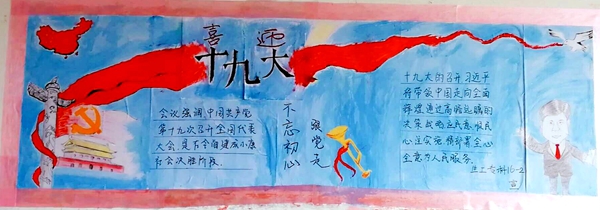 喜迎
十九大
会议强调，中国共产党
第十九次召开全国代表
大会，是在全面建成小康
社会决胜阶段。
不忘初心
跟党走
十九大的召开习近平
将带领中国走向全面
辉煌通过高瞻远瞩的
决策战略在民意顺民
心

全意为人民服务。